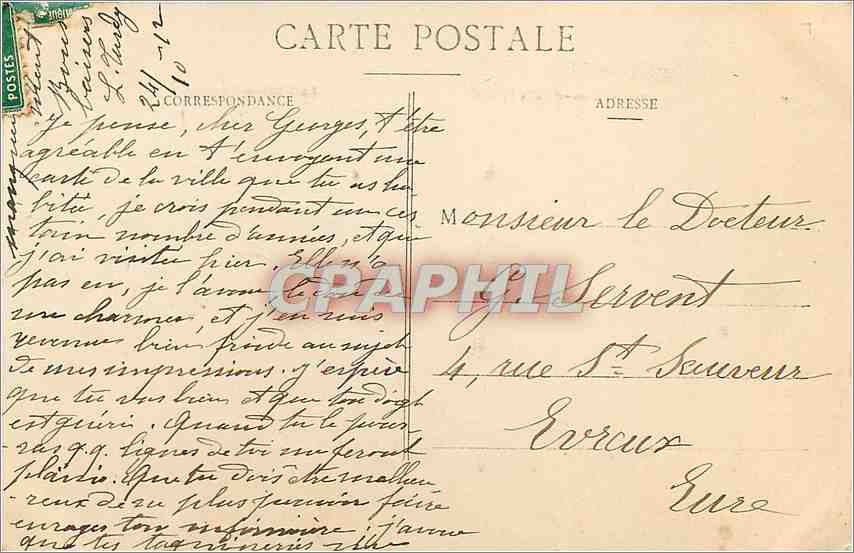 CARTE POSTALE
CORRESPONDANCE
ADRESSE
POSTES
Je pense, cher Georges, t'être
agréable en t'envoyant une
carte de la ville que tu as ha
bitée, je crois pendant un cer
tain nombre d'années, et que
j'ai visitée hier. Elle n'a
pas eu, je l'avoue, le don de
me charmer, et j'en suis
revenue bien froide au sujet
de mes impressions. J'espère
que tu vas bien et que ton doigt
est guéri. Quand tu le pour
ras q.q. lignes de toi me feront
plaisir. Que tu dois être malheu
reux de ne plus pouvoir faire
enrager ton infirmière; j'avoue
que tes taquineries me
manquent
Bons
baisers
L.
24/10-12
Monsieur le Docteur
G. Servent
4, rue St Sauveur
Evreux
Eure
CPAPHIL